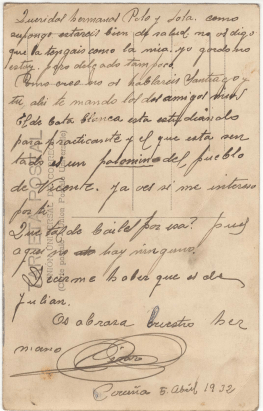 Queridos hermanos Polo y Lola. como
supongo estareis bien de salud no os digo
que la tengais como la mia. yo gordo no
estoy. pero delgado tampoco
Como creo no os hablareis Santiago y
tu ahi te mando los dos amigos
El de bata blanca esta estudiando
para practicante y el que esta sen
tado es un palomino del pueblo
de Vicente. ya ves si me intereso
por ti.
Que tal de baile por esa? pues
aqui no hay ninguno.
Decirme haber que es de
Julian.
Os abraza vuestro her
mano
Coruña 5. Abril 1932
TARJETA POSTAL